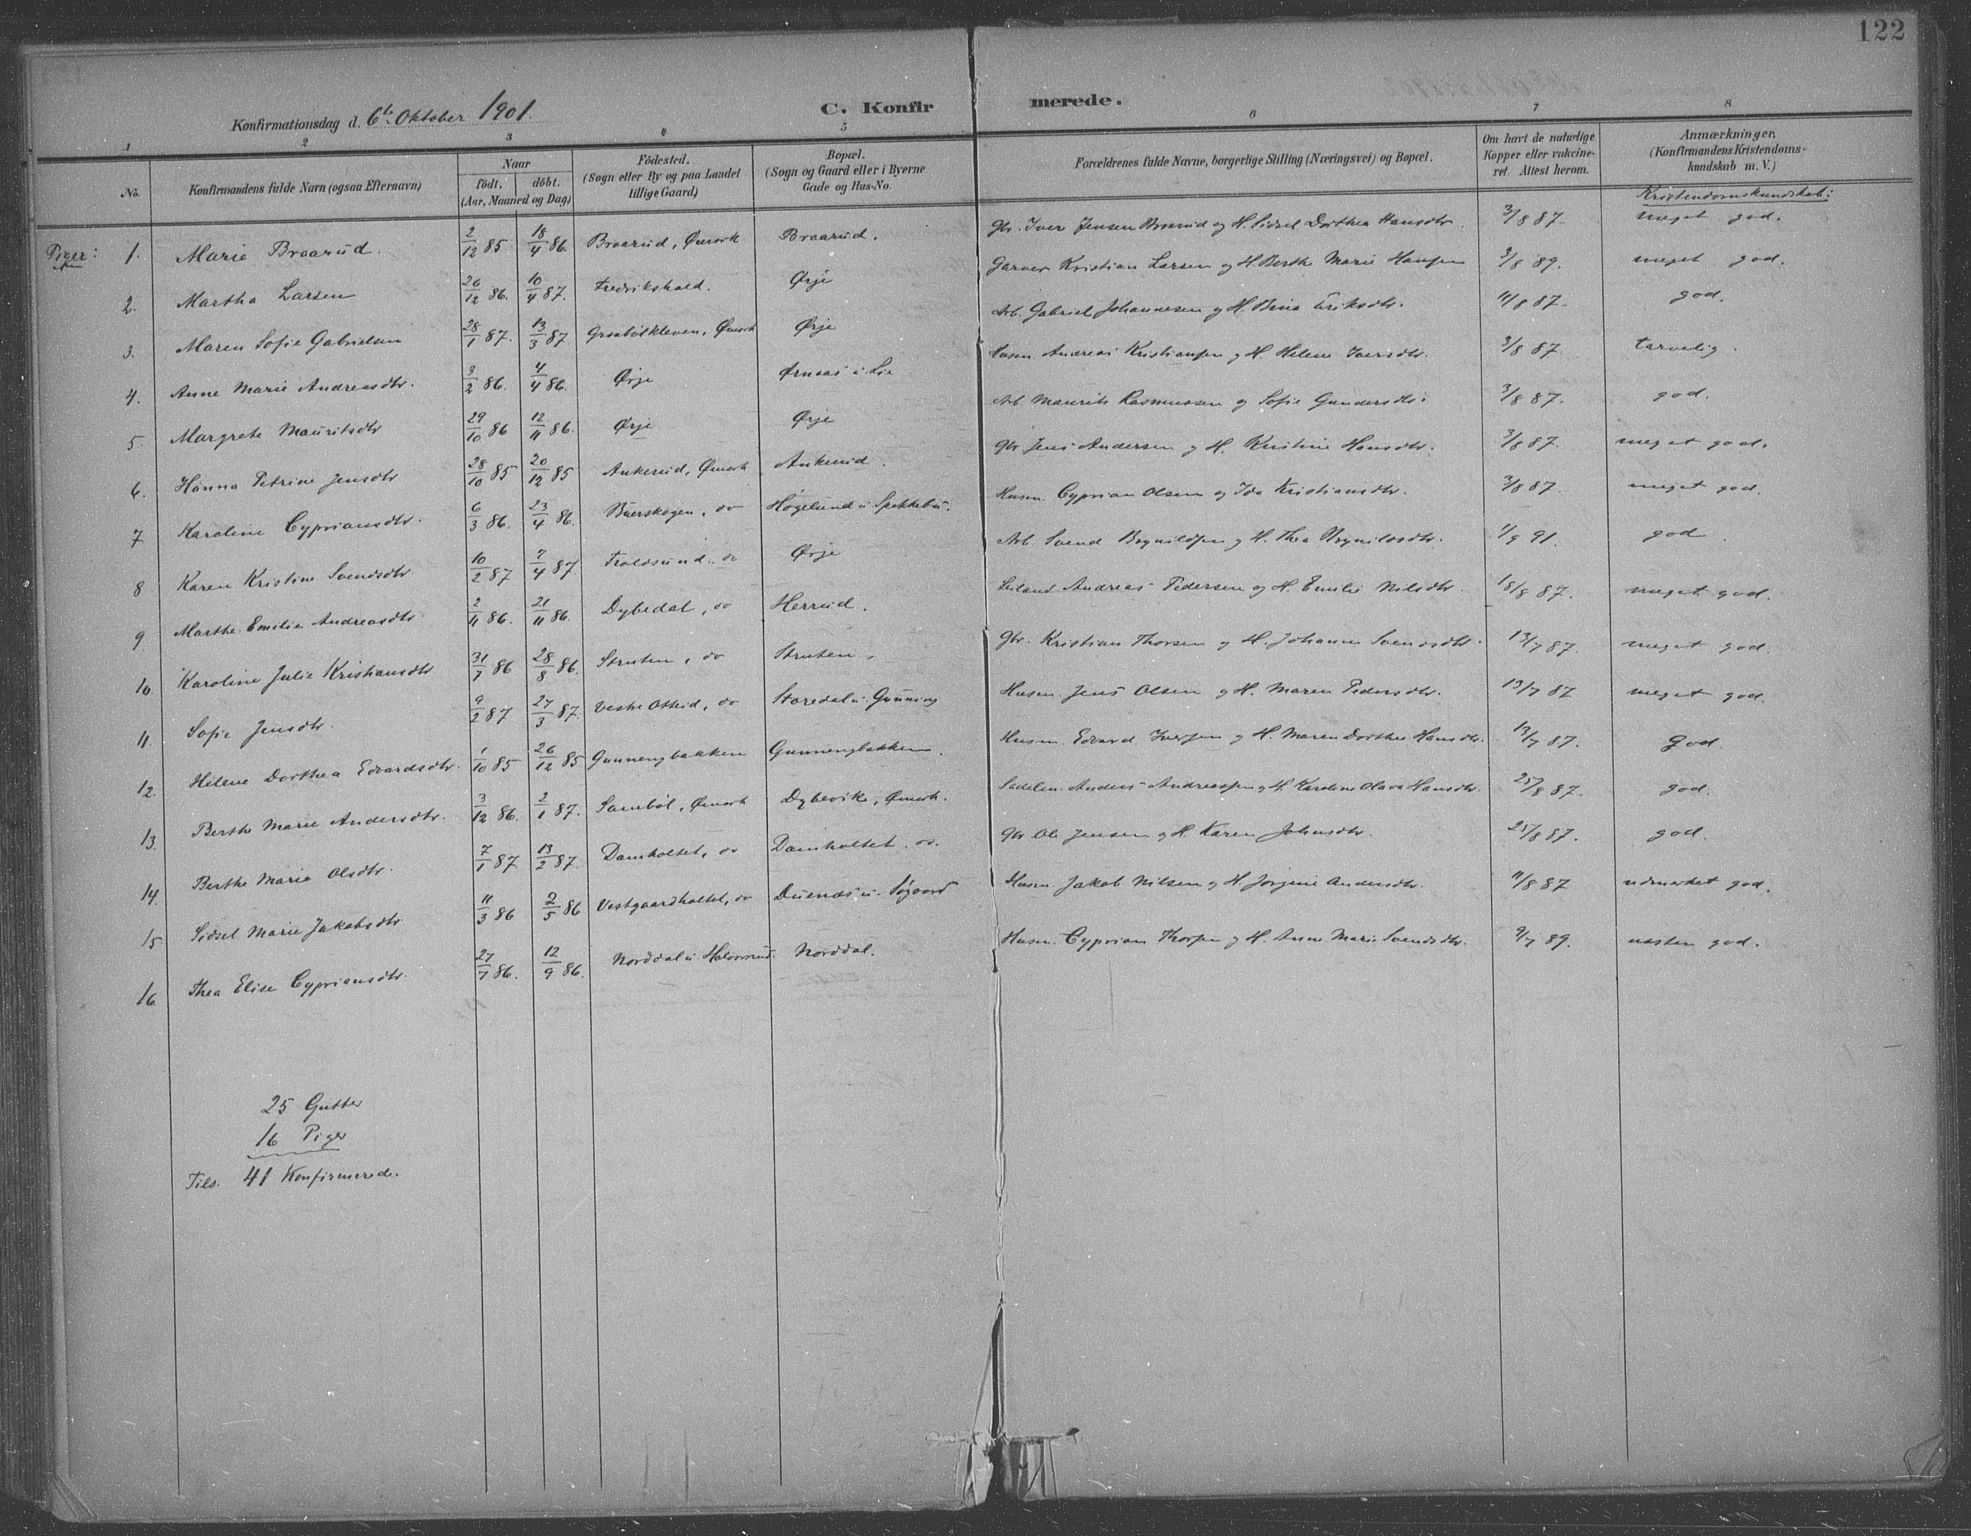 122
Konfirmationsdag d. 6te Oktober 1901. C. Konfirmerede.
1 2 3 4 5 6 7 8
No. Konfirmandens fulde Navn (ogsaa Efternavn) Naar født. døbt. (Aar, Maaned og Dag) Fødested. (Sogn eller By og paa Landet tillige Gaard) Bopæl. (Sogn og Gaard eller i Byerne Gade og Hus-No. Forældrenes fulde Navne, borgerlige Stilling (Næringsvei) og Bopæl. Om havt de naturlige Kopper eller vakcineret. Attest herom. Anmærkninger. (Konfirmandens Kristendomskundskab m. V.)
Kristendomskundskab:
Piger: 1. Marie Braarud. 2/12 85 18/4 86. Braarud, Ømark Braarud. Gbr. Iver Jensen Braarud og H. Sidsel Dorthea Hansdtr. 3/8 87. meget god.
2. Martha Larsen 26/12 86. 10/4 87. Fredrikshald. Ørje Garver Kristian Larsen og H. Berthe Marie Hansen 3/8 89. meget god.
3. Maren Sofie Gabrielsen 28/1 87. 13/3 87 Graabølkleven, Ømark Ørje Arb. Gabriel Johannesen og H. Bina Eriksdtr. 11/8 87. god.
4. Anne Marie Andreasdtr. 3/2 86. 4/4 86. Ørje Ørnæs u. Lie Husm. Andreas Kristiansen og H. Helene Iversdtr. 3/8 87. tarvelig.
5. Margrete Mauritsdtr 29/10 86 12/11 86. Ørje Ørje Arb. Maurits Rasmussen og Sofie Gundersdtr. 3/8 87. god.
6. Hanna Petrine Jensdtr 28/10 85 20/12 85 Ankerud, Ømark Ankerud. Gbr Jens Andersen og H. Kristine Hansdtr. 3/8 87. meget god.
7 Karoline Cypriansdtr. 6/3 86. 23/4 86. Buerskogen, do Høgelund u. Spekkebu. Husm. Cyprian Olsen og Ida Kristiansdtr. 3/8 87. meget god.
8 Karen Kristine Svendsdtr 10/2 87 7/4 87. Troldsund, do Ørje Arb. Svend Brynildsen og H. Thea Brynildsdtr. 1/9 91. god.
9 Marthe Emilie Andreasdtr 2/11 86. 21/11 86. Dybedal, do Herrud. Andreas Pedersen og H. Emilie Nilsdtr. 18/8 87. meget god.
10. Karoline Julie Kristiansdtr 31/7 86 28/8 86. Struten, do Struten. Gbr. Kristian Thorsen og H. Johanne Svendsdtr. 13/7 87. meget god.
11. Sofie Jensdtr. 9/2 87 27/3 87. Vestre Otteid, do Storedal u. Gunneng Husm. Jens Olsen og H. Maren Pedersdtr. 13/7 87 meget god.
12. Helene Dorthea Edvardsdtr. 1/10 85 26/12 85 Gunnengbakken Gunnengbakken. Husm. Edvard Iversen og H. Maren Dorthea Hansdtr. 13/7 87. God.
13. Berthe Marie Andersdtr. 3/12 86. 2/1 87. Sambøl, Ømark Dybevik, Ømark. Sadelm. Anders Andreassen og H. Karoline Olava Hansdtr. 25/8 87. god.
14. Berthe Marie Olsdtr. 7/1 87 13/2 87. Damholtet, do Damholtet. do. Gbr. Ole Jensen og H. Karen Johnsdtr. 25/8 87. god.
15 Sidsel Marie Jakobsdtr 11/3 86 2/5 86 Vestgaardholtet, do Duenæs u. Søgaard Husm. Jakob Nilsen og H. Jørgine Andersdtr. 11/8 87 udmærket god.
16 Thea Elise Cypriansdtr. 27/7 86. 12/9 86. Norddal u. Halvorsrud. Norddal. Husm. Cyprian Thorsen og H. Anne Marie Svendsdtr. 9/7 89. næsten god.
25 Gutter
16 Piger
Tils. 41 Konfirmerede.